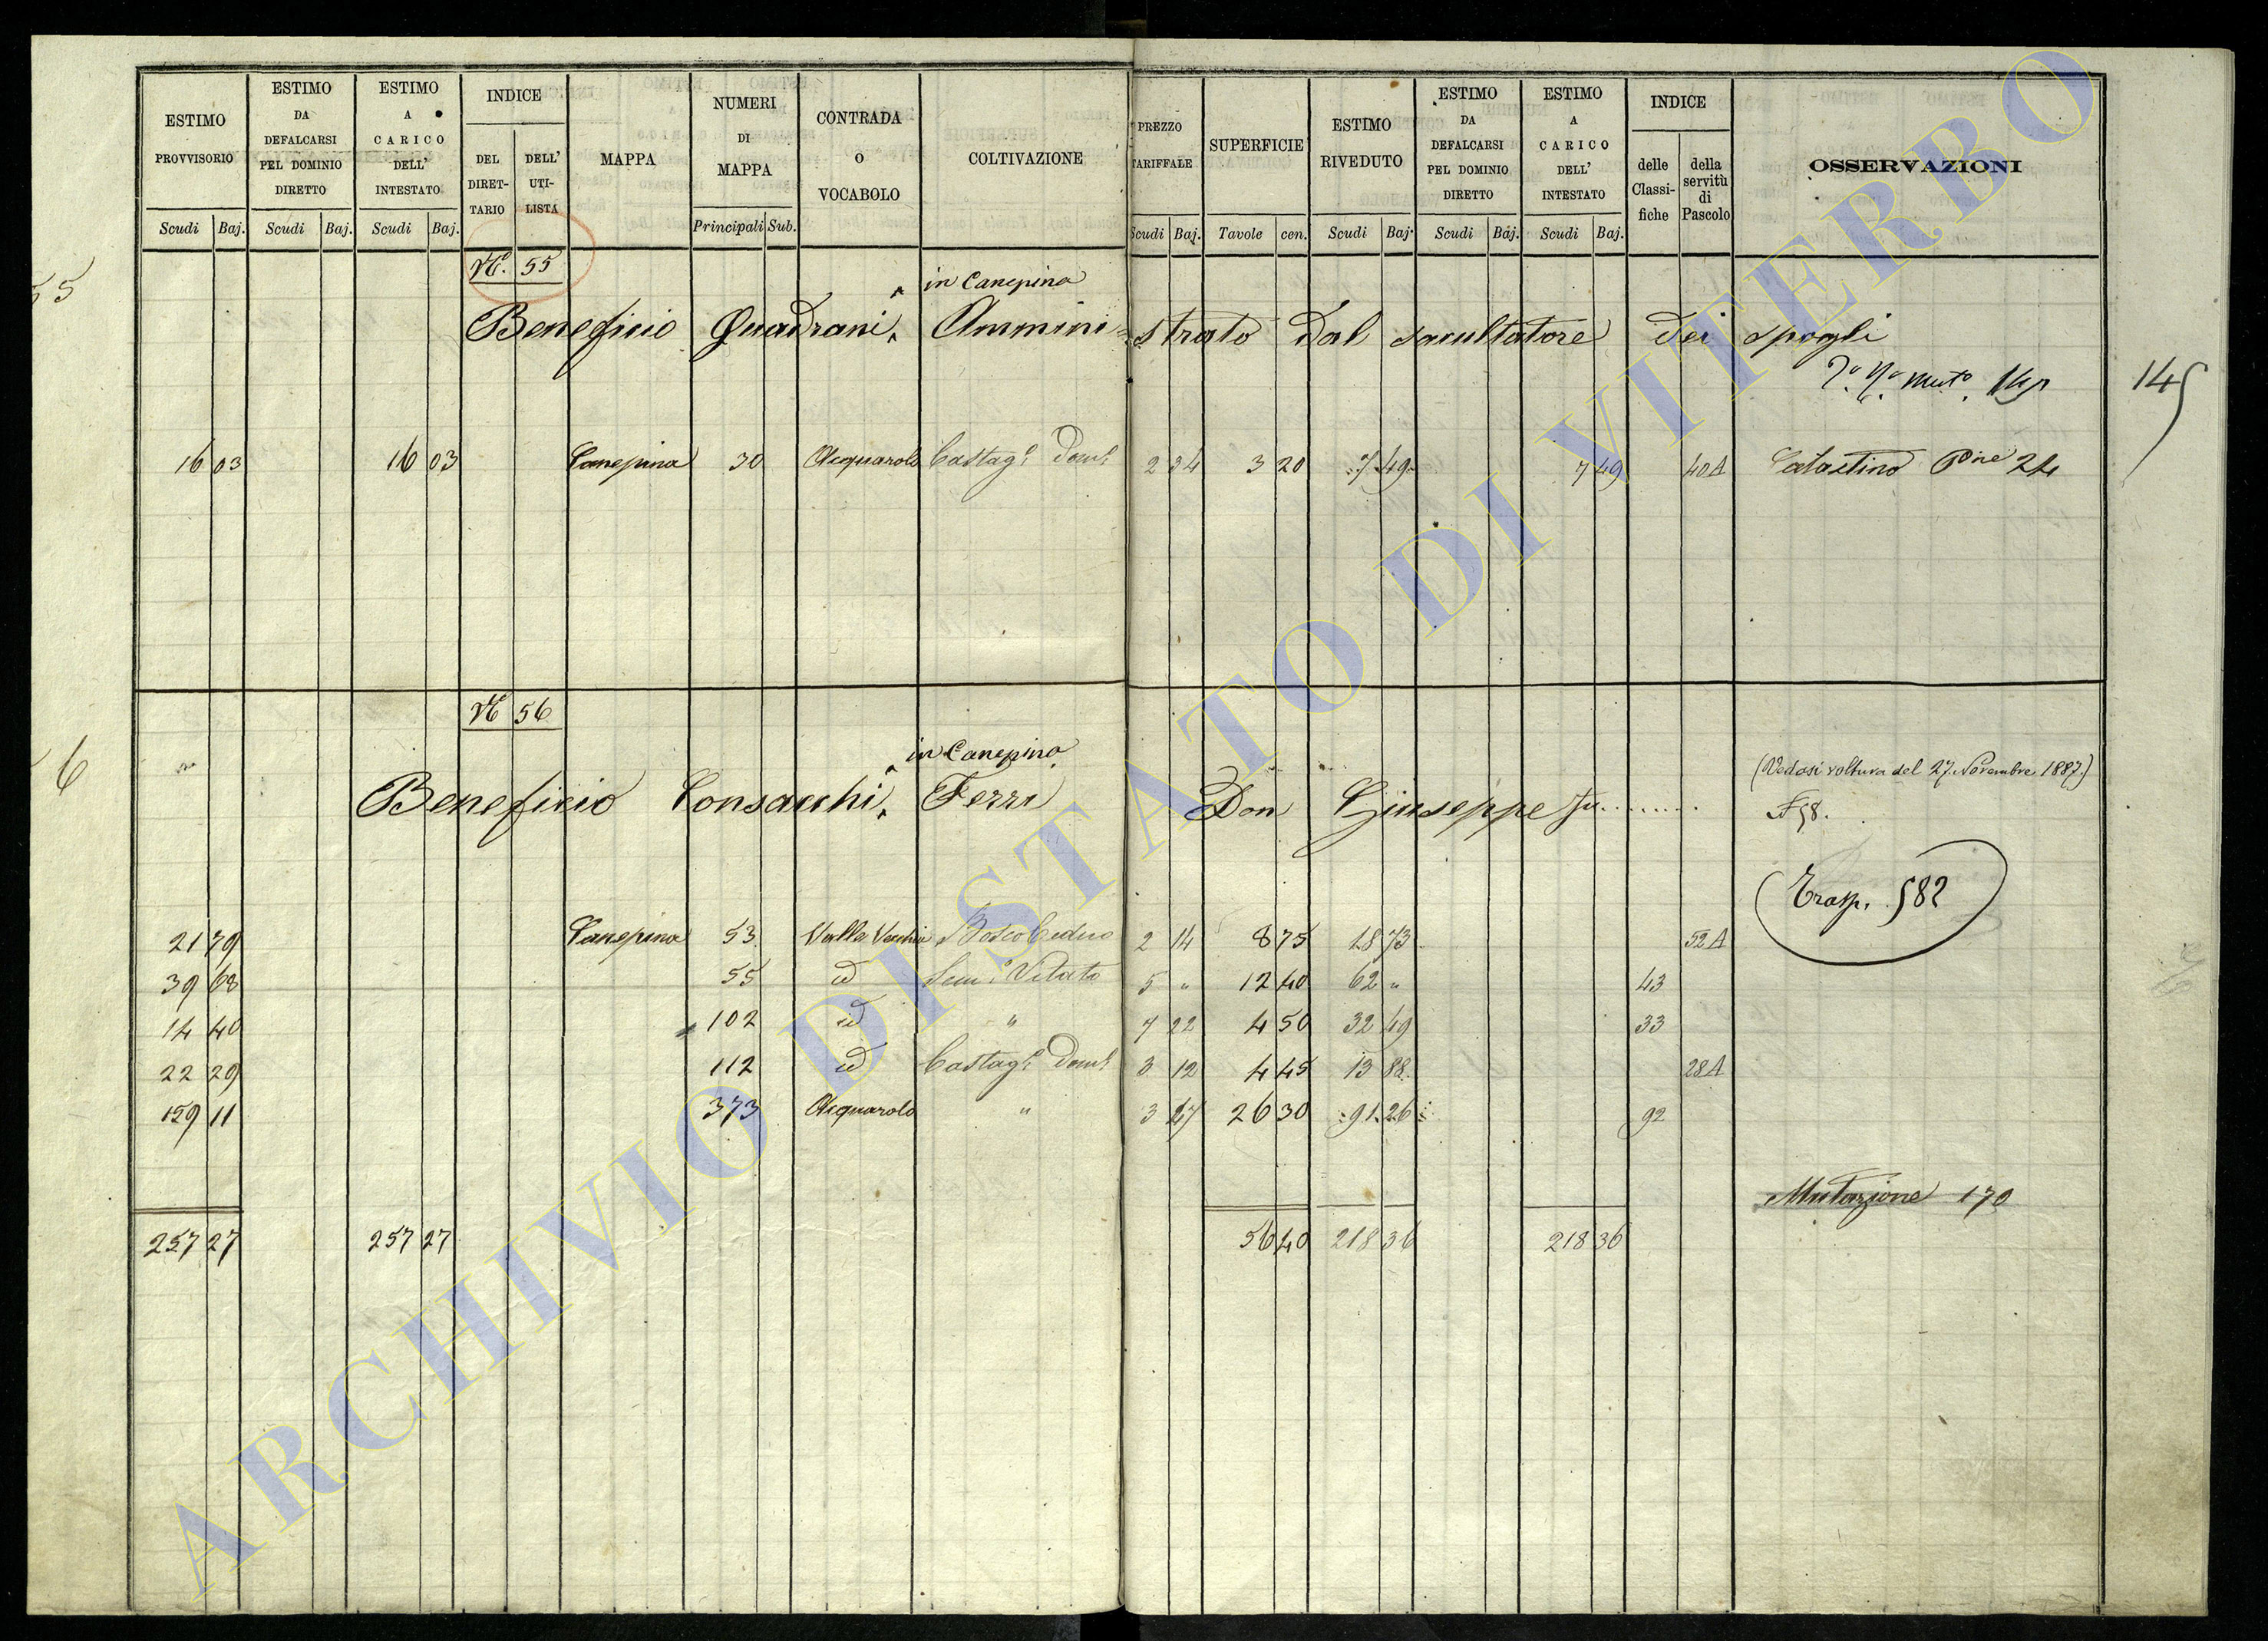 ESTIMO PROVVISORIO Scudi Baj.
ESTIMO DA DEFALCARSI PEL DOMINIO DIRETTO Scudi Baj.
ESTIMO A CARICO DELL' INTESTATO Scudi Baj.
INDICE DEL DIRETTARIO DELL' UTILISTA
MAPPA
NUMERI DI MAPPA Principali Sub.
CONTRADA O VOCABOLO
COLTIVAZIONE
PREZZO TARIFFALE Scudi Baj.
SUPERFICIE Tavole cen.
ESTIMO RIVEDUTO Scudi Baj.
ESTIMO DA DEFALCARSI PEL DOMINIO DIRETTO Scudi Baj.
ESTIMO A CARICO DELL' INTESTATO Scudi Baj.
INDICE delle Classifiche della servitù di Pascolo
OSSERVAZIONI
55
N. 55
in Canepina
Beneficio Quadrani, Amministrato dal sacultatore dei spogli
mut. 145
145
16 03 16 03 Canepina 30 Acquarolo Castag. Dom. 2 34 3 20 7 49 7 49 40A Catastino Pne 24
N 56
6
in Canepina
Beneficio Consacchi, Ferri Don Giuseppe fu........
(Vedasi voltura del 27. Novembre 1887.)
N 58.
Trasp. 582
21 79 Canepina 53 Valle Vecchia Bosco Ceduo 2 14 8 75 18 73 52A
39 68 55 id Sem. Vitato 5 " 12 40 62 " 43
14 40 102 id " 7 22 4 50 32 49 33
22 29 112 id Castag. Dom. 3 12 4 45 13 88 28A
159 11 373 Acquarolo " 3 47 26 30 91 26 92
Mutazione 170
257 27 257 27 56 40 218 36 218 36
ARCHIVIO DI STATO DI VITERBO